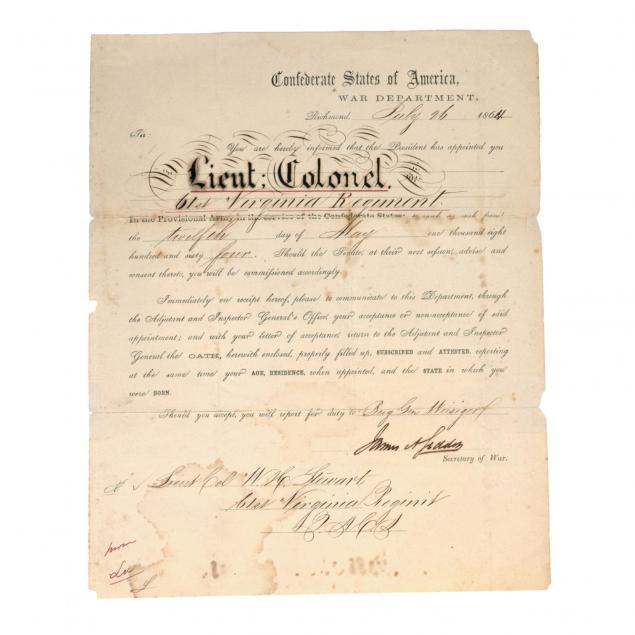 Confederate States of America,
WAR DEPARTMENT,
Richmond, July 26 1864
To:
You are hereby informed that the President has appointed you
Lieut; Colonel.
61st Virginia Regiment
In the Provisional Army in the service of the Confederate States: to rank as such from
the twelfth day of May one thousand eight
hundred and sixty four. Should the Senate, at their next session, advise and
consent thereto, you will be commissioned accordingly.
Immediately on receipt hereof, please to communicate to this Department, through
the Adjutant and Inspector General's Office, your acceptance or non-acceptance of said
appointment; and with your letter of acceptance, return to the Adjutant and Inspector
General the OATH, herewith enclosed, properly filled up, SUBSCRIBED and ATTESTED, reporting
at the same time your AGE, RESIDENCE, when appointed, and the STATE in which you
were BORN.
Should you accept, you will report for duty to Brig Gen Weisiger
James A Seddon
Secretary of War.
Lieut Col W H Stewart
61st Virginia Regimt
P. A C S